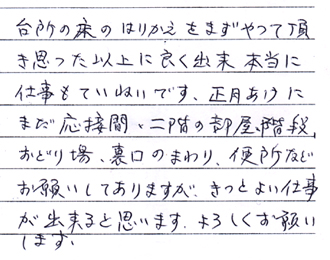 台所の床のはりかえをまずやって頂
き思った以上に良く出来本当に
仕事もていねいです、正月あけに
まだ応接間、二階の部屋、階段、
おどり場、裏口のまわり、便所など
お願いしてありますが、きっとよい仕事
が出来ると思います、よろしくお願い
します、